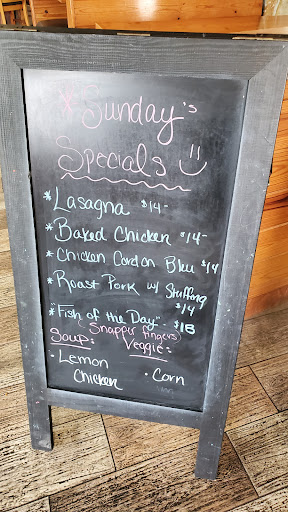 * Sunday's
Specials
* Lasagna $14-
* Baked Chicken $14-
* Chicken Cordon Bleu $14
* Roast Pork w/ Stuffing
$14
* "Fish of the Day" - $18
(Snapper fingers)
Soup: Veggie:
· Lemon Chicken
· Corn